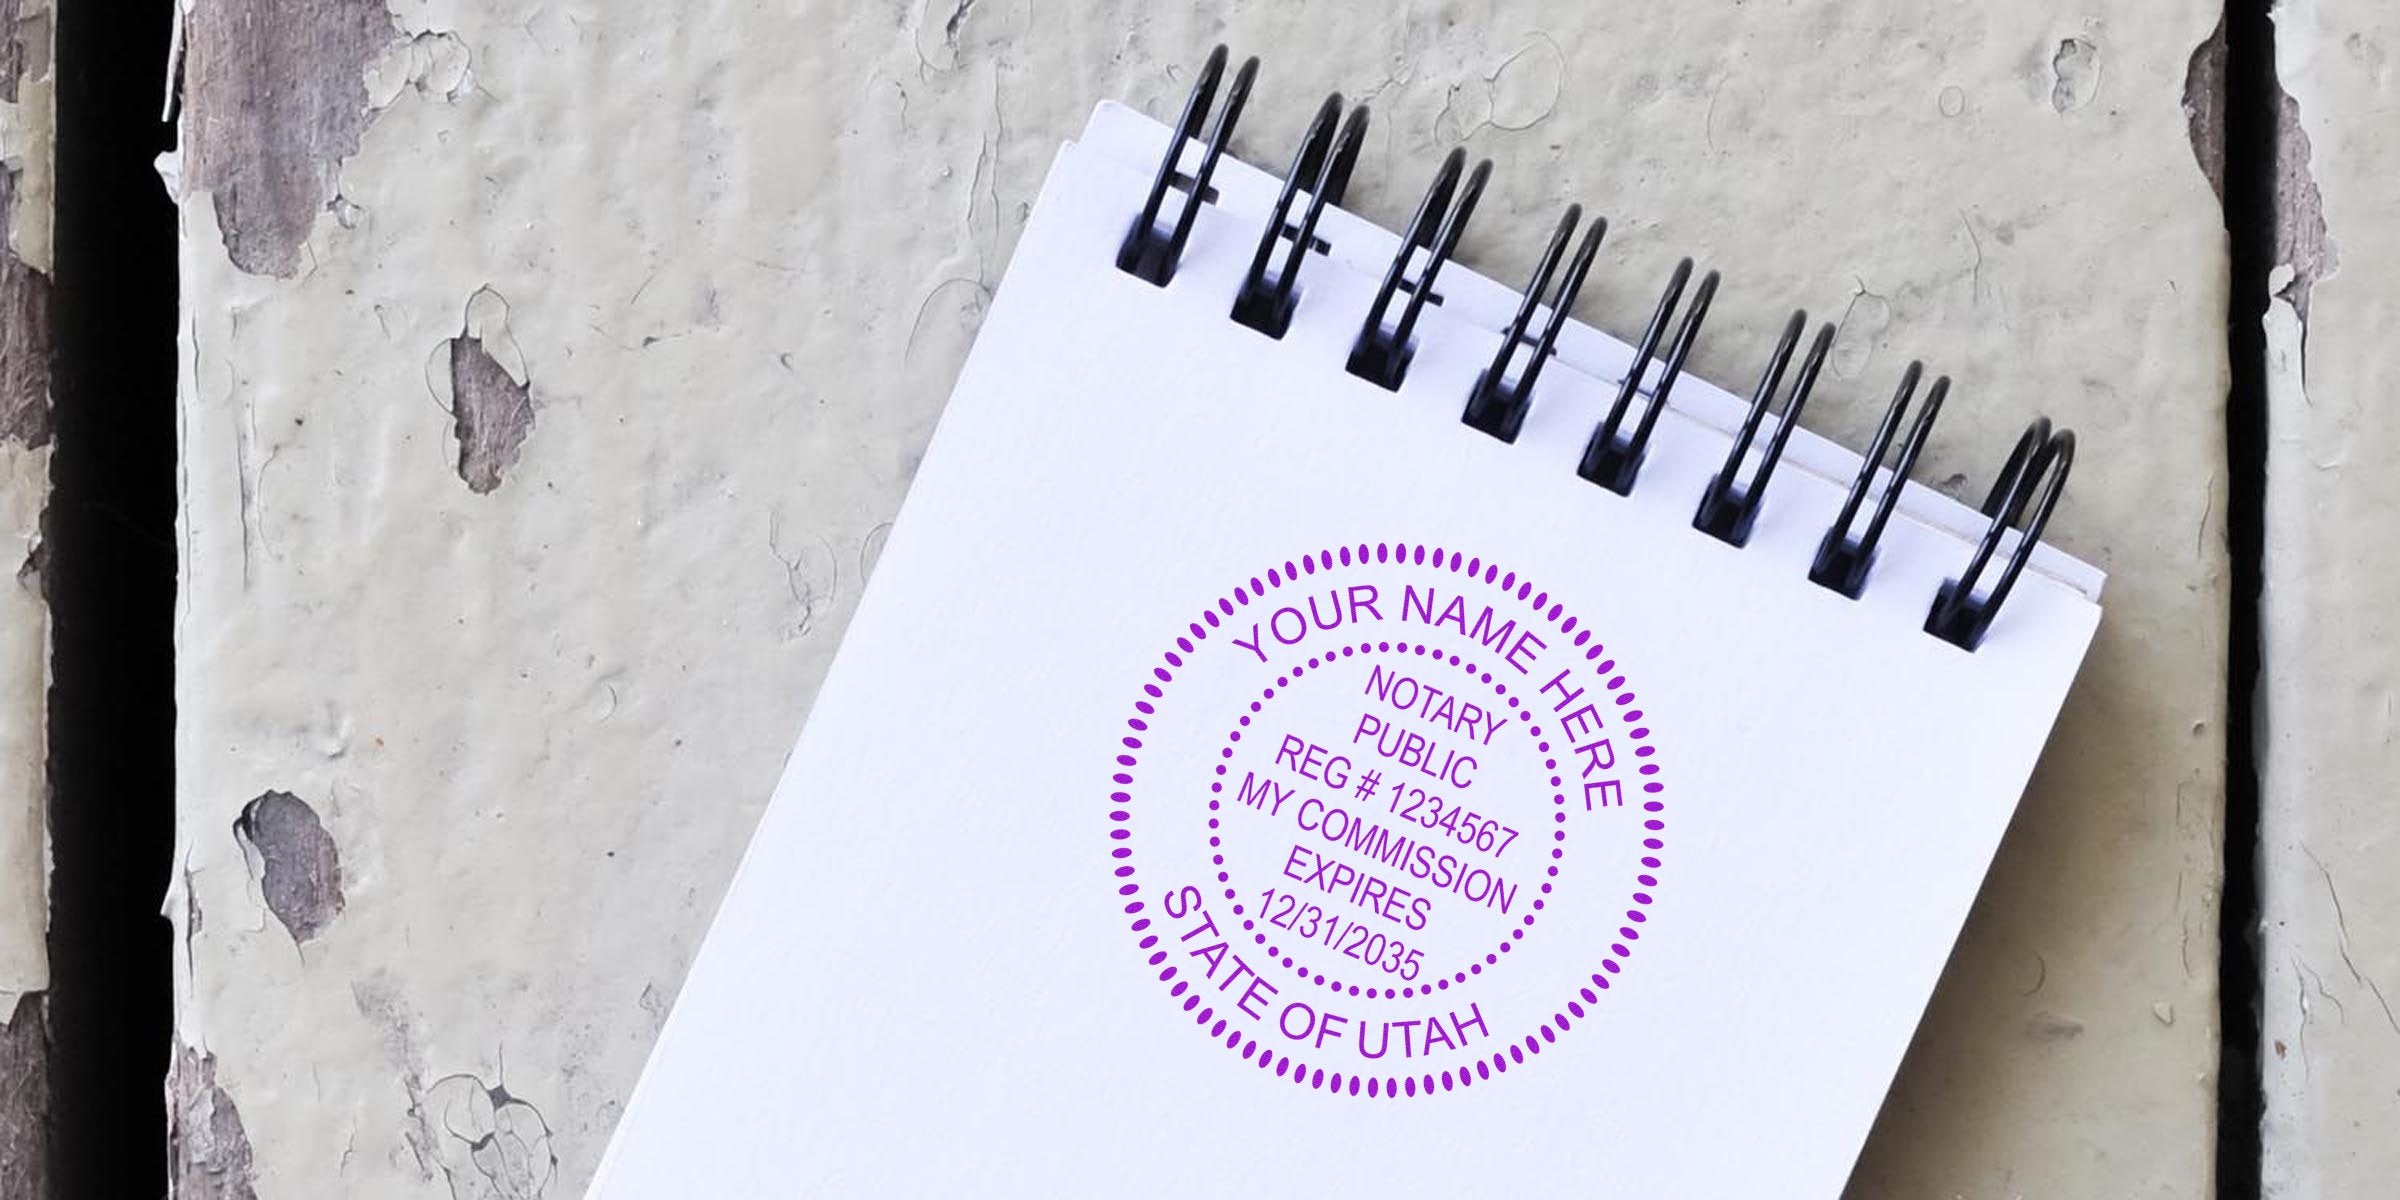 YOUR NAME HERE
NOTARY
PUBLIC
REG # 1234567
MY COMMISSION
EXPIRES
12/31/2035
STATE OF UTAH